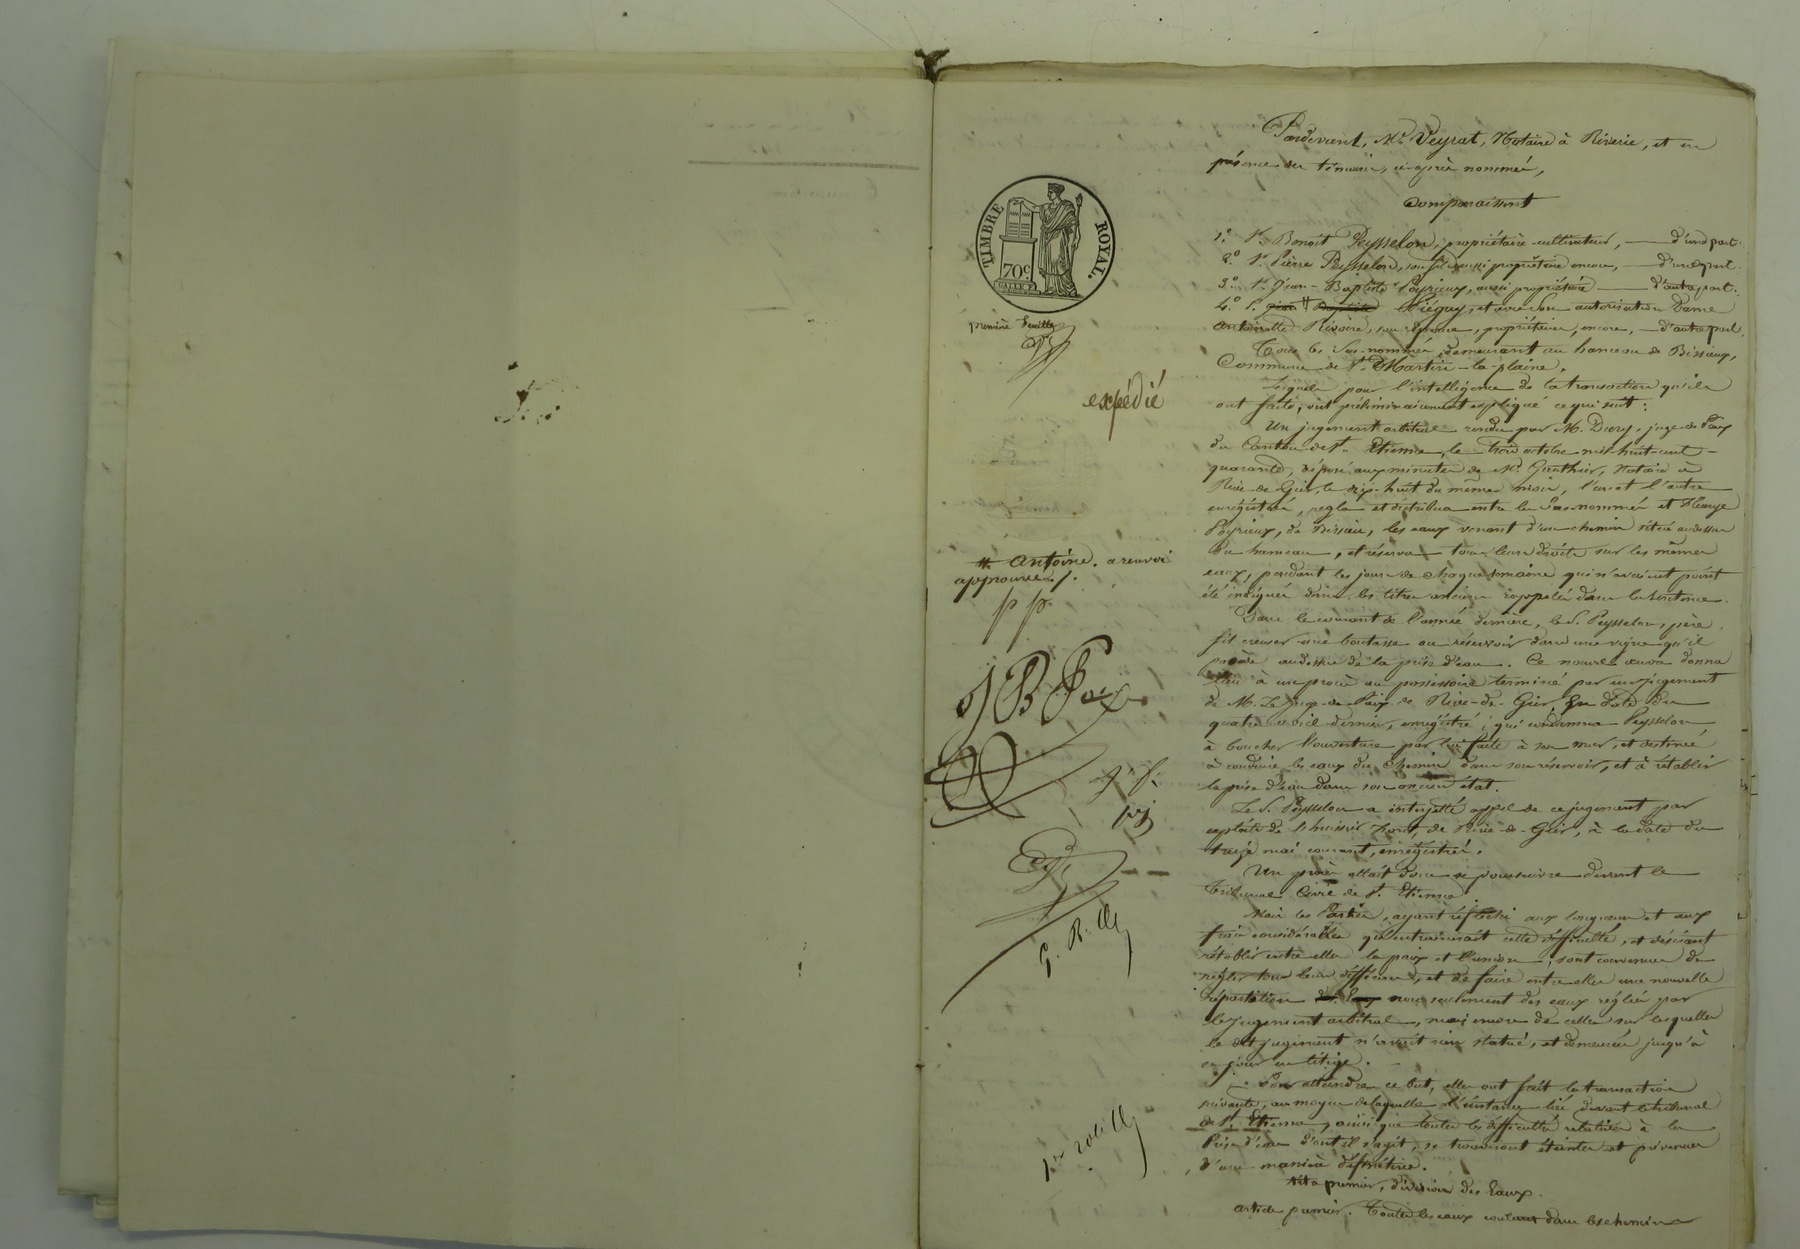 Pardevant, Me Veyrat, Notaire à Riverie, et en
présence des témoins, ci-après nommés,
Comparaissent
1.° Sr. Benoît Peysselon, propriétaire-cultivateur, — d'une part.
2.° Sr. Pierre Peysselon, son fils aussi propriétaire encore, — d'une part.
3.° Sr. Jean-Baptiste Poyrieux, aussi propriétaire — d'autre part.
4.° Sr. # Piéguy, et avec son autorisation Dame
Antoinette Rivoire, son épouse, propriétaires, encore, — d'autre part.
Tous les sus-nommés, demeurant au hameau de Bissieux,
Commune de St. Martin-la-plaine.
Lesquels pour l'intelligence de la transaction qu'ils
ont faite, ont préliminairement expliqué ce qui suit:
Un jugement arbitral rendu par M. Dury, juge de Paix
du Canton de St. Etienne, le trois octobre mil-huit-cent-
quarante, déposé aux minutes de Me. Gauthier, Notaire à
Rive-de-Gier, le dix-huit du même mois, l'un et l'autre
enregistrés, regla et distribua entre les sus-nommés et
Poyrieux, de Bissieux, les eaux venant d'un chemin situé au dessus
du hameau, et réserva tous leurs droits sur les mêmes
eaux, pendant les jours de chaque semaine qui n'avaient point
été indiqués dans les titres anciens rappelés dans la sentence.
Dans le courant de l'année dernière, le S. Peysselon, père
fit creuser une boutasse ou réservoir dans une vigne qu'il
possède au dessus de la prise d'eau. Ce nouvel œuvre donna
lieu à un procès au possessoire terminé par un jugement
de M. Le Juge-de-Paix de Rive-de-Gier, en date du
quatre avril dernier, enregistré, qui condamna Peysselon
à boucher l'ouverture par lui faite à son mur, et destinée
à conduire les eaux du chemin dans son réservoir, et à rétablir
la prise d'eau dans son ancien état.
Le S. Peysselon a interjetté appel de ce jugement par
exploit de l'huissier Font, de Rive-de-Gier, à la date du
treize mai courant, enregistré.
Un procès allait donc se poursuivre devant le
Tribunal Civil de St. Etienne
Mais les Parties, ayant réfléchi aux longueurs et aux
frais considérables qu'entrainerait cette difficulté, et désirant
rétablir entre elles la paix et l'union, sont convenues de
régler tous leurs différens, et de faire entre elles une nouvelle
répartition non seulement des eaux réglées par
le jugement arbitral, mais encore de celles sur lesquelles
le dit jugement n'avait rien statué, et demeurées jusqu'à
ce jour en litige.
Pour atteindre ce but, elles ont fait la transaction
suivante, au moyen de laquelle l'instance liée devant le tribunal
de St. Etienne, ainsi que toutes les difficultés relatives à la
Prise d'eau dont il s'agit, se trouveront éteintes et prévenues
d'une manière définitive.
titre premier, division des Eaux.
article premier. Toutes les eaux coulant dans le chemin
TIMBRE ROYAL.
70c.
première feuille
expédié
# Antoine. a renvoi
approuvé.
p p.
J B Poy
G. B.
1er rôle